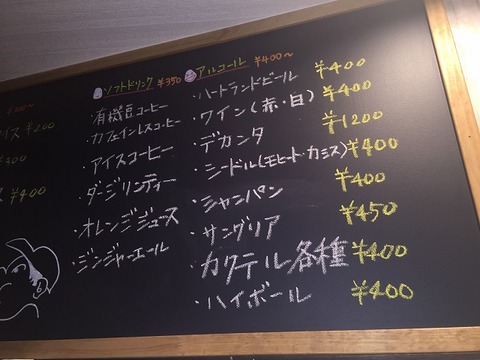 ¥200
¥300
¥400
ソフトドリンク ¥350
・有機豆コーヒー
・カフェインレスコーヒー
・アイスコーヒー
・ダージリンティー
・オレンジジュース
・ジンジャーエール
アルコール ¥400〜
・ハートランドビール ¥400
・ワイン(赤・白) ¥400
・デカンタ ¥1200
・シードル(モヒート・カミス) ¥400
・シャンパン ¥400
・サングリア ¥450
・カクテル各種 ¥400
・ハイボール ¥400